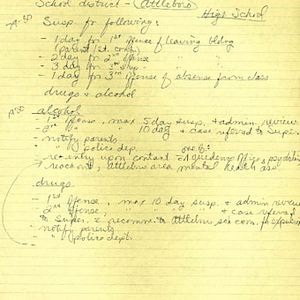 School district - (Attleboro)
High School
Susp. for following:
- 1 day for 1st offense of leaving bldg
(parent/st. conf.)
- 2 day for 2nd offense " "
- 3 day for 3rd " " "
- 1 day for 3rd offense of absense from class
drugs & alcohol
alcohol
- 1st offense, max 5 day susp. & admin. review
- 2nd " " 10 day " + case refered to Super.
- notify parents
- " police dep.
- re-entry upon contact guidence office
attleboro area mental health
drugs
- 1st offense, max 10 day susp. & admin review
- 2nd offense, " " " & case refered
to Super. & recomm. to Attleboro sch com.
- notify parents
- " (police dept.